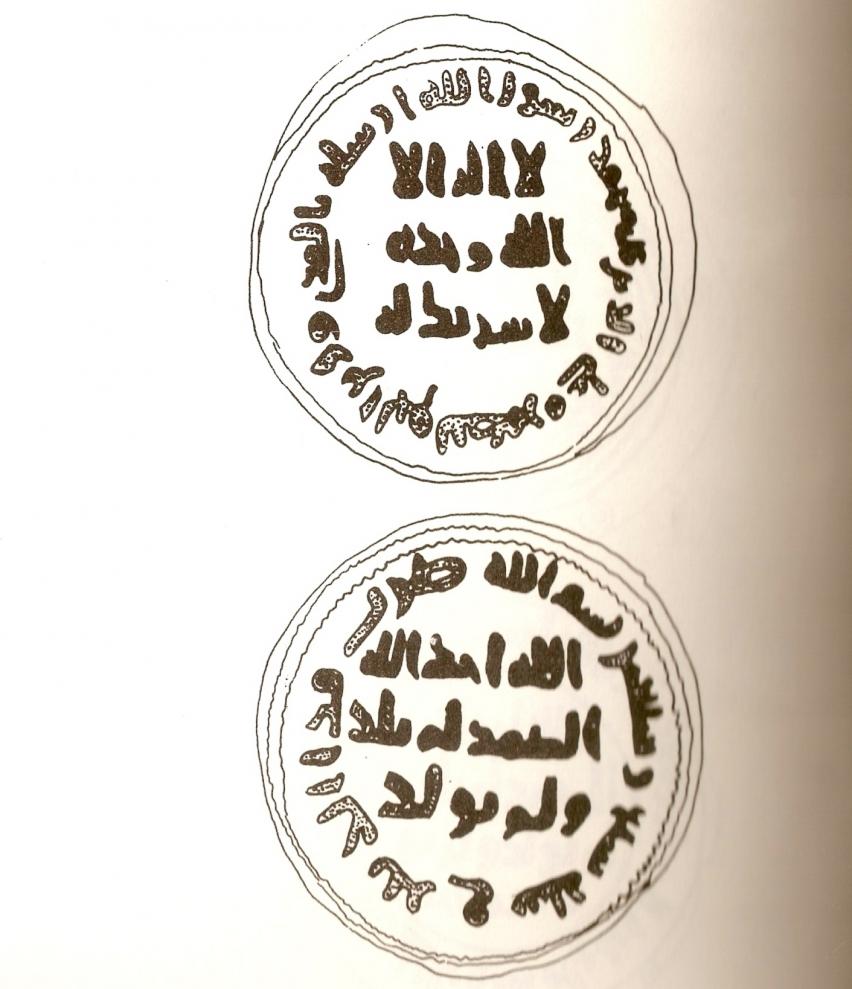 لا اله الا
الله وحده
لا شريك له
محمد رسول الله ارسله بالهدى ودين الحق ليظهره على الدين كله
الله احد الله
الصمد لم يلد
ولم يولد
بسم الله ضرب هذا الدينر في سنة